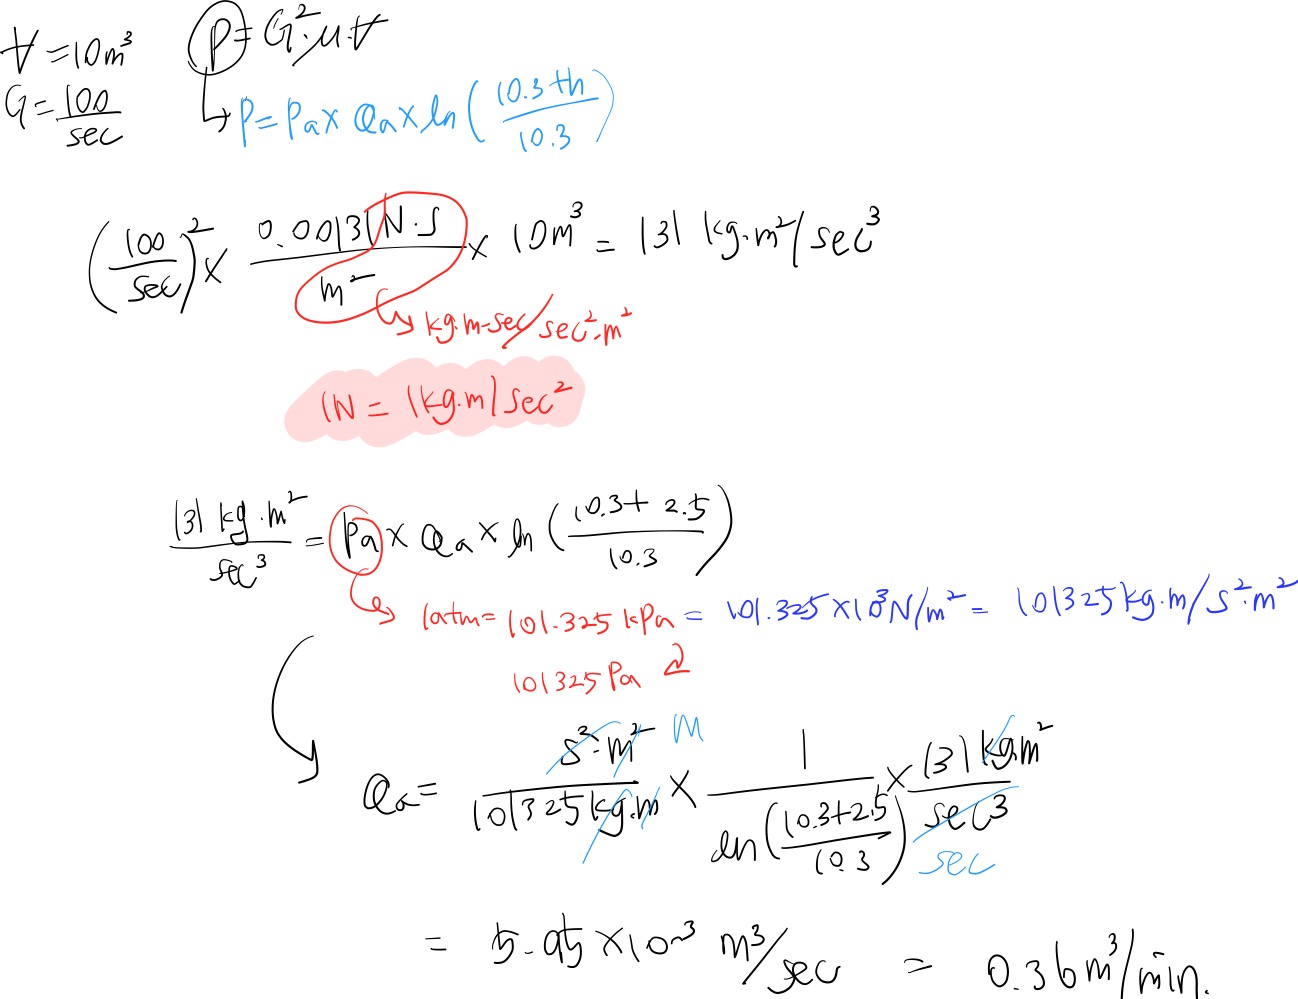 V = 10m³
G = 100/sec
P = G²·μ·V
P = Pa × Qa × ln((10.3+h)/10.3)
(100/sec)² × 0.00131 N·S/m² × 10m³ = 131 kg·m²/sec³
kg·m·sec/sec²·m²
1N = 1kg·m/sec²
131 kg·m²/sec³ = Pa × Qa × ln((10.3+2.5)/10.3)
1atm = 101.325 kPa = 101.325×10³N/m² = 101325kg·m/s²·m²
101325 Pa
Qa = s²·m²/101325kg·m × 1/ln((10.3+2.5)/10.3) × 131kg·m²/sec³
m
sec
= 5.95×10⁻³ m³/sec = 0.36m³/min.